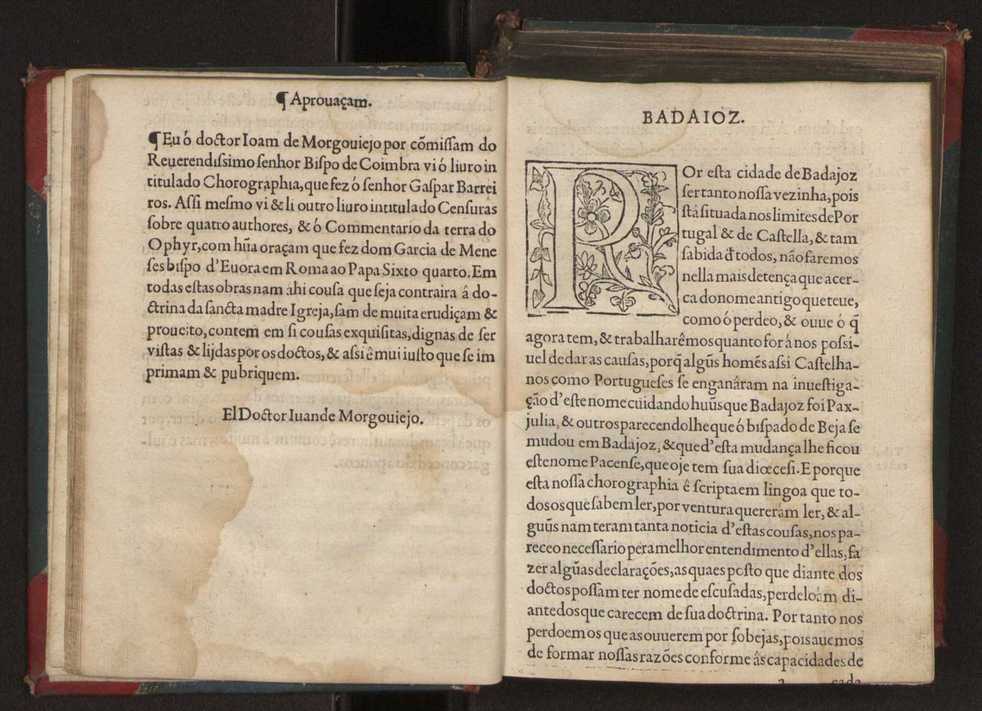 ¶ Aprouaçam.
¶ Eu ó doctor Ioam de Morgouiejo por cõmissam do
Reuerendissimo senhor Bispo de Coimbra vi ó liuro in
titulado Chorographia, que fez ó senhor Gaspar Barrei
ros. Assi mesmo vi & li outro liuro intitulado Censuras
sobre quatro authores, & ó Commentario da terra do
Ophyr, com hũa oraçam que fez dom Garcia de Mene
ses bispo d'Euora em Roma ao Papa Sixto quarto. Em
todas estas obras nam áhi cousa que seja contraira á do-
ctrina da sancta madre Igreja, sam de muita erudiçam &
proueito, contem em si cousas exquisitas, dignas de ser
vistas & lijdas por os doctos, & assi ê mui iusto que se im
primam & pubriquem.
El Doctor Iuan de Morgouiejo.
BADAIOZ.
POr esta cidade de Badajoz
ser tanto nossa vezinha, pois
stá situada nos limites de Por
tugal & de Castella, & tam
sabida d̃ todos, não faremos
nella mais detença que acer-
ca do nome antigo que teue,
como ó perdeo, & ouue ó q̃
agora tem, & trabalharêmos quanto for á nos possi-
uel de dar as causas, porq̃ algũs homẽs assi Castelha-
nos como Portugueses se enganâram na inuestiga-
ção d'este nome cuidando huũs que Badajoz foi Pax-
julia, & outros parecendolhe que ó bispado de Beja se
mudou em Badajoz, & que d'esta mudança lhe ficou
este nome Pacense, que oje tem sua diœcesi. E porque
esta nossa chorographia ê scripta em lingoa que to-
dos os que sabem ler, por ventura quereràm ler, & al-
guũs nam teram tanta noticia d'estas cousas, nos pa-
receo necessario pera melhor entendimento d'ellas, fa
zer algũas declarações, as quaes posto que diante dos
doctos possam ter nome de escusadas, perdeloám di-
ante dos que carecem de sua doctrina. Por tanto nos
perdoem os que as ouuerem por sobejas, pois auemos
de formar nossas razões conforme âs capacidades de